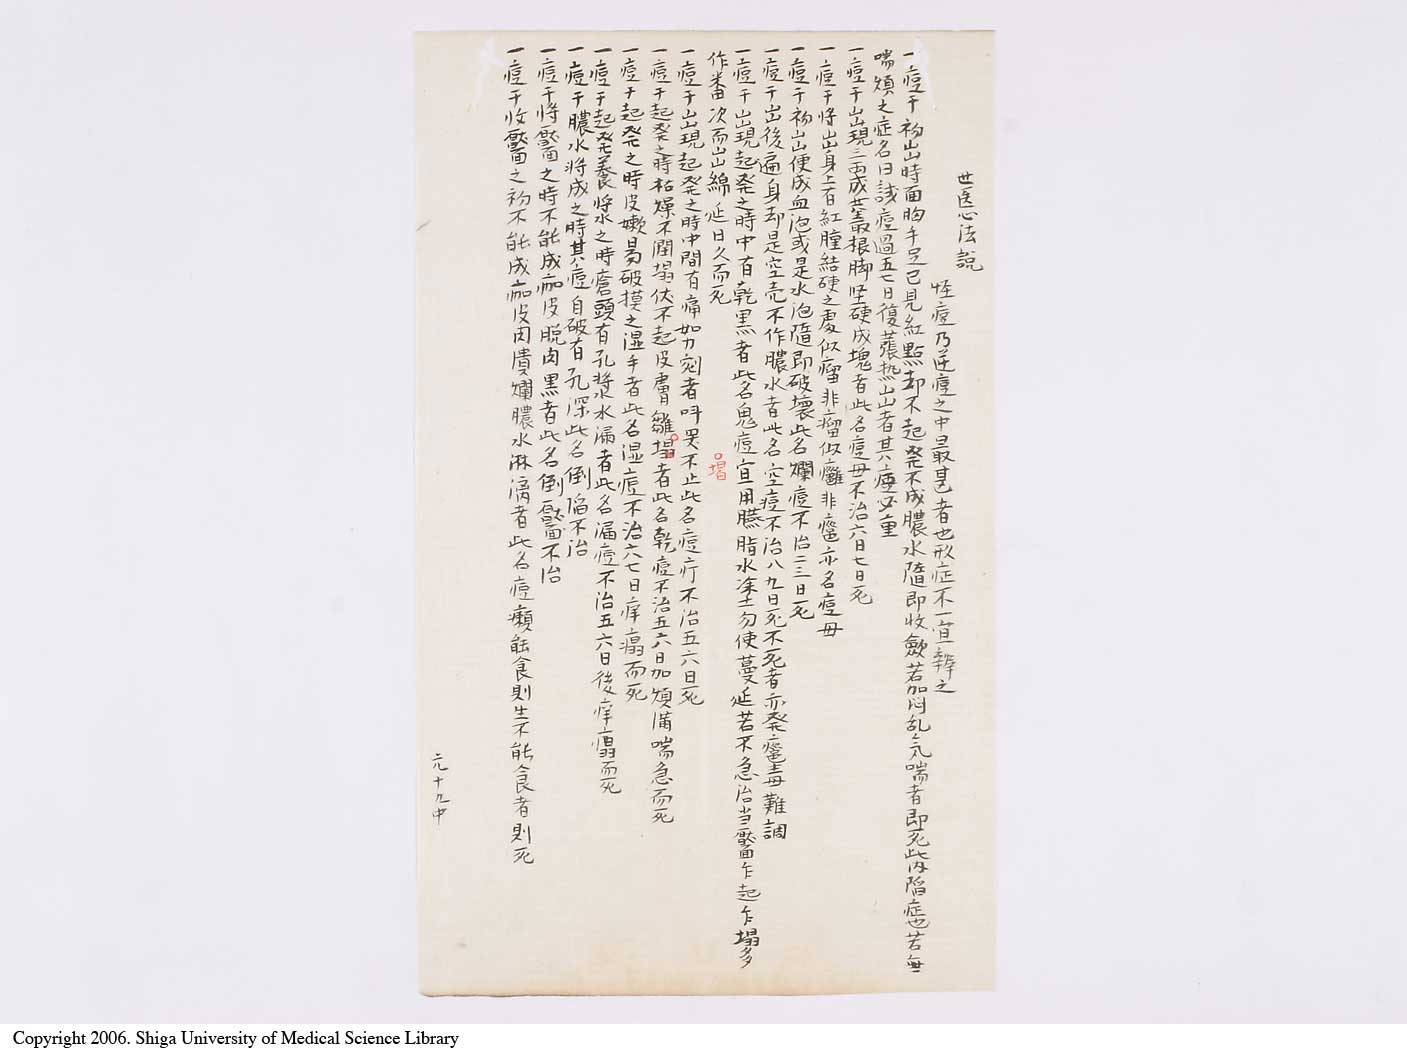 世医心法説
怪痘乃逆痘之中最甚者也形症不一宜辨之
一痘于初出時面胸手足已見紅點却不起発不成膿水隨即收斂若加悶乱気喘者即死此内陷症也若無
喘煩之症名曰試痘過五七日復蕟热出者其痘必重
一痘于出現三両成叢根脚坚硬成塊者此名痘母不治六日七日死
一痘于将出身上有紅腫結硬之處似瘤非瘤似癰非癰亦名痘母
一痘于初出便成血泡或是水泡隨即破壞此名爛痘不治二三日死
一痘于出後遍身却是空壳不作膿水者此名空痘不治八九日死不死者亦発癰毒難調
一痘于出現起発之時中有乾黒者此名鬼痘宜用臙脂水塗之勿使蔓延若不急治当靨乍起乍塌多
作畨次而出綿延日久而死
一痘于出現起発之時中間有痛如刀剜者叫哭不止此名痘疔不治五六日死
一痘于起発之時枯燥不潤塌伏不起皮膚皺塌者此名乾痘不治五六日加煩満喘急而死
塌
一痘于起発之時皮嫩易破摸之湿手者此名湿痘不治六七日痒瘍而死
一痘于起発養漿之時瘡頭有孔漿水漏者此名漏痘不治五六日後痒瘍而死
一痘于膿水将成之時其痘自破有孔深此名倒陷不治
一痘于将靨之時不能成痂皮脱肉黒者此名倒靨不治
一痘于收靨之初不能成痂皮肉潰爛膿水淋漓者此名痘癩能食則生不能食者則死
元十九中
Copyright 2006. Shiga University of Medical Science Library